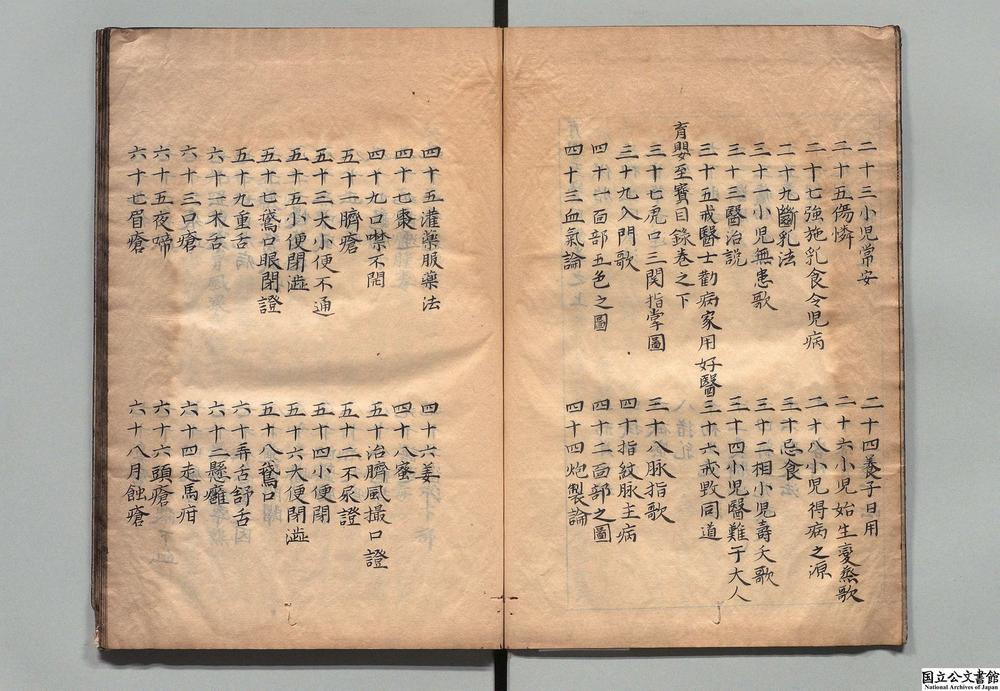 二十三小児常安　二十四養子日用
二十五傷憐　二十六小児始生變蒸歌
二十七強施乳食令児病　二十八小児得病之源
二十九斷乳法　三十忌食
三十一小児無患歌　三十二相小児壽夭歌
三十三醫治説　三十四小児醫難于大人
三十五戒醫士勸病家用好醫　三十六戒毀同道
育嬰至寶目錄卷之下
三十七虎口三関指掌圖　三十八脉指歌
三十九入門歌　四十指紋脉主病
四十一面部五色之圖　四十二面部之圖
四十三血氣論　四十四炮製論
四十五灌藥服藥法　四十六姜
四十七棗　四十八蜜
四十九口噤不開　五十治臍風撮口證
五十一臍瘡　五十二不尿證
五十三大小便不通　五十四小便閉
五十五小便閉澁　五十六大便閉澁
五十七鵞口眼閉證　五十八鵞口
五十九重舌　六十弄舌舒舌因
六十一木舌　六十二懸癰
六十三口瘡　六十四走馬疳
六十五夜啼　六十六頭瘡
六十七眉瘡　六十八月蝕瘡
国立公文書館
National Archives of Japan